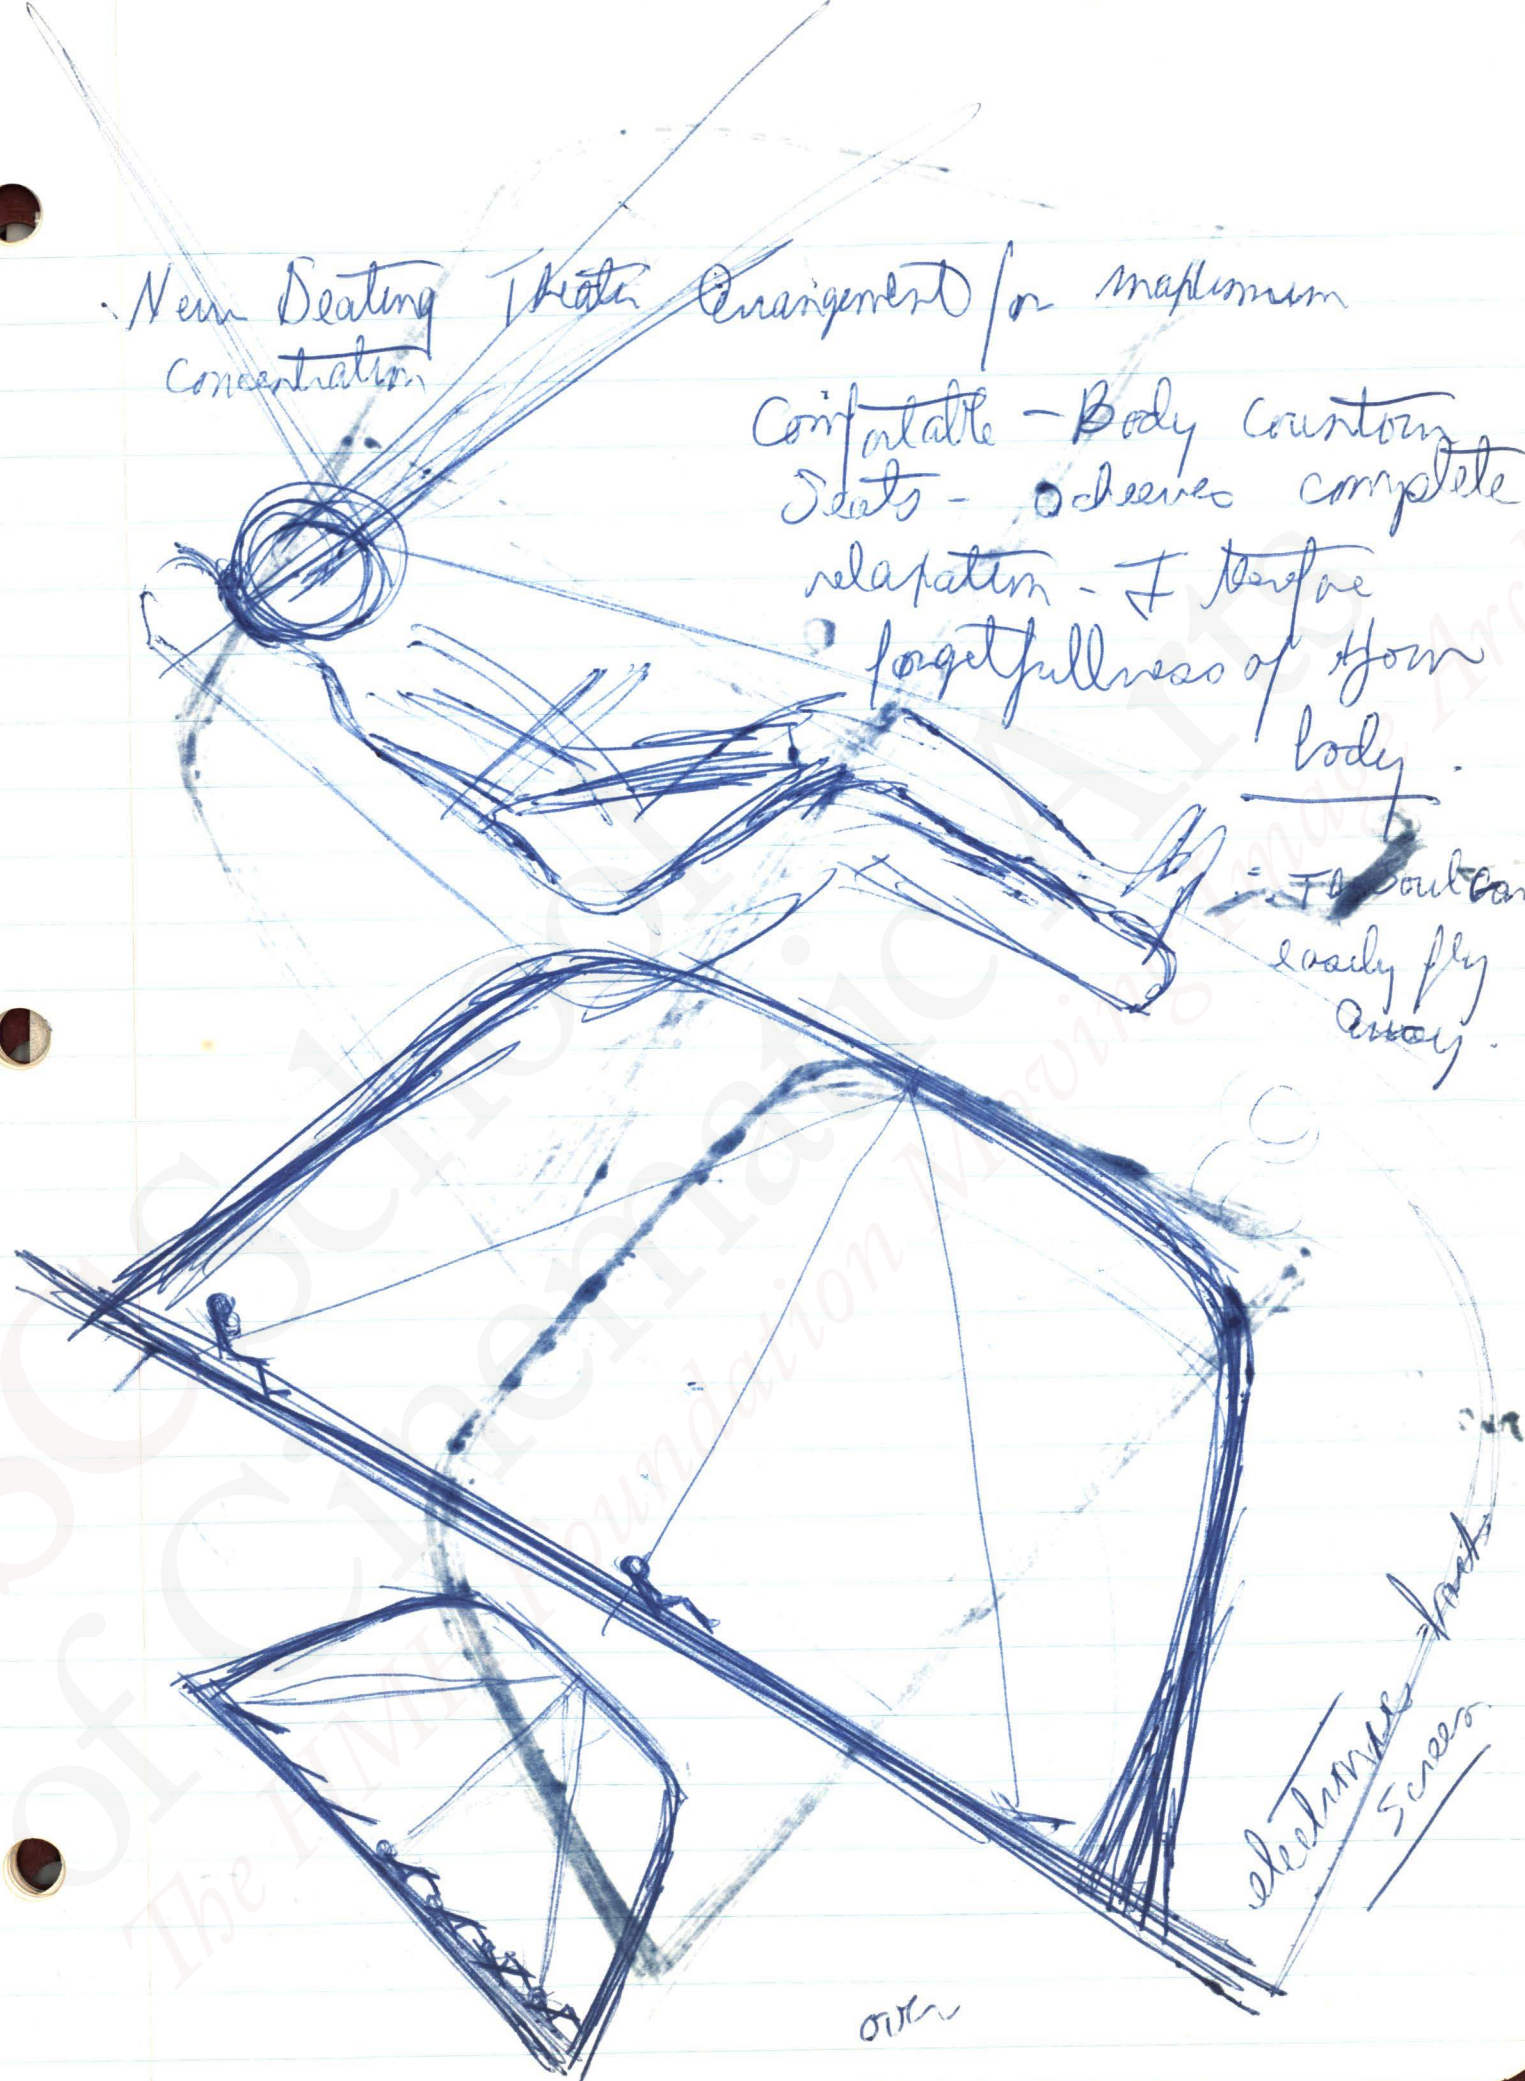 New Seating Theater Arrangement for maximum
concentration
Comfortable - Body Countour
Seats - acheeves complete
relaxation - & therefore
forgetfullness of your
body.
- The soul can
easily fly
away.
electronic
Screen
over
USC School
of Cinematic Arts
The HMH Foundation Moving Image Arc